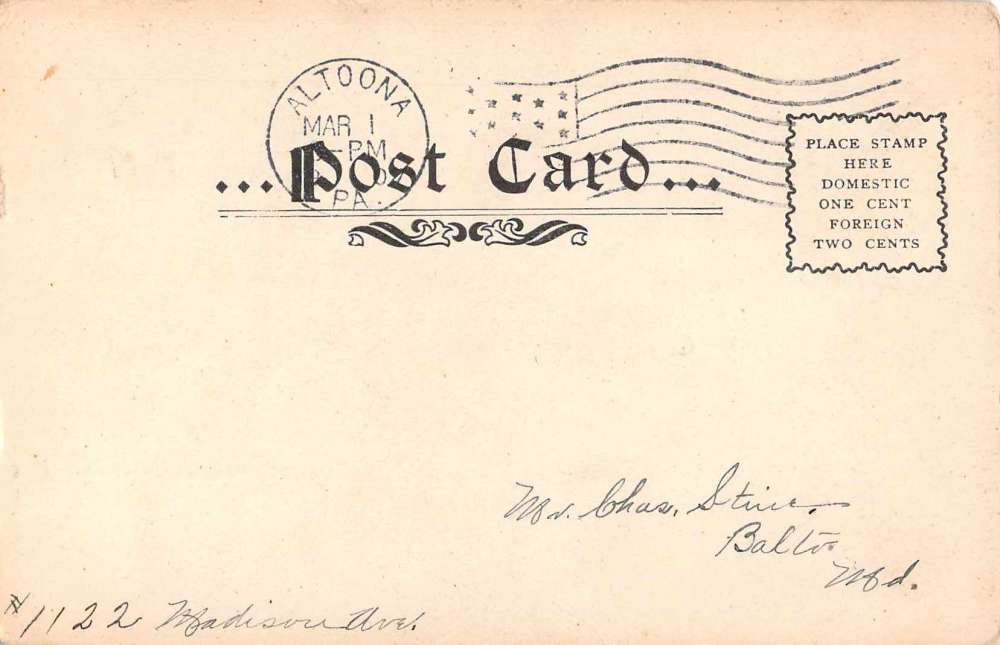 ALTOONA
MAR 1
PM
PA.
...Post Card...
PLACE STAMP
HERE
DOMESTIC
ONE CENT
FOREIGN
TWO CENTS
Mr. Chas. Stine.
Balto.
Md.
#1122 Madison Ave.